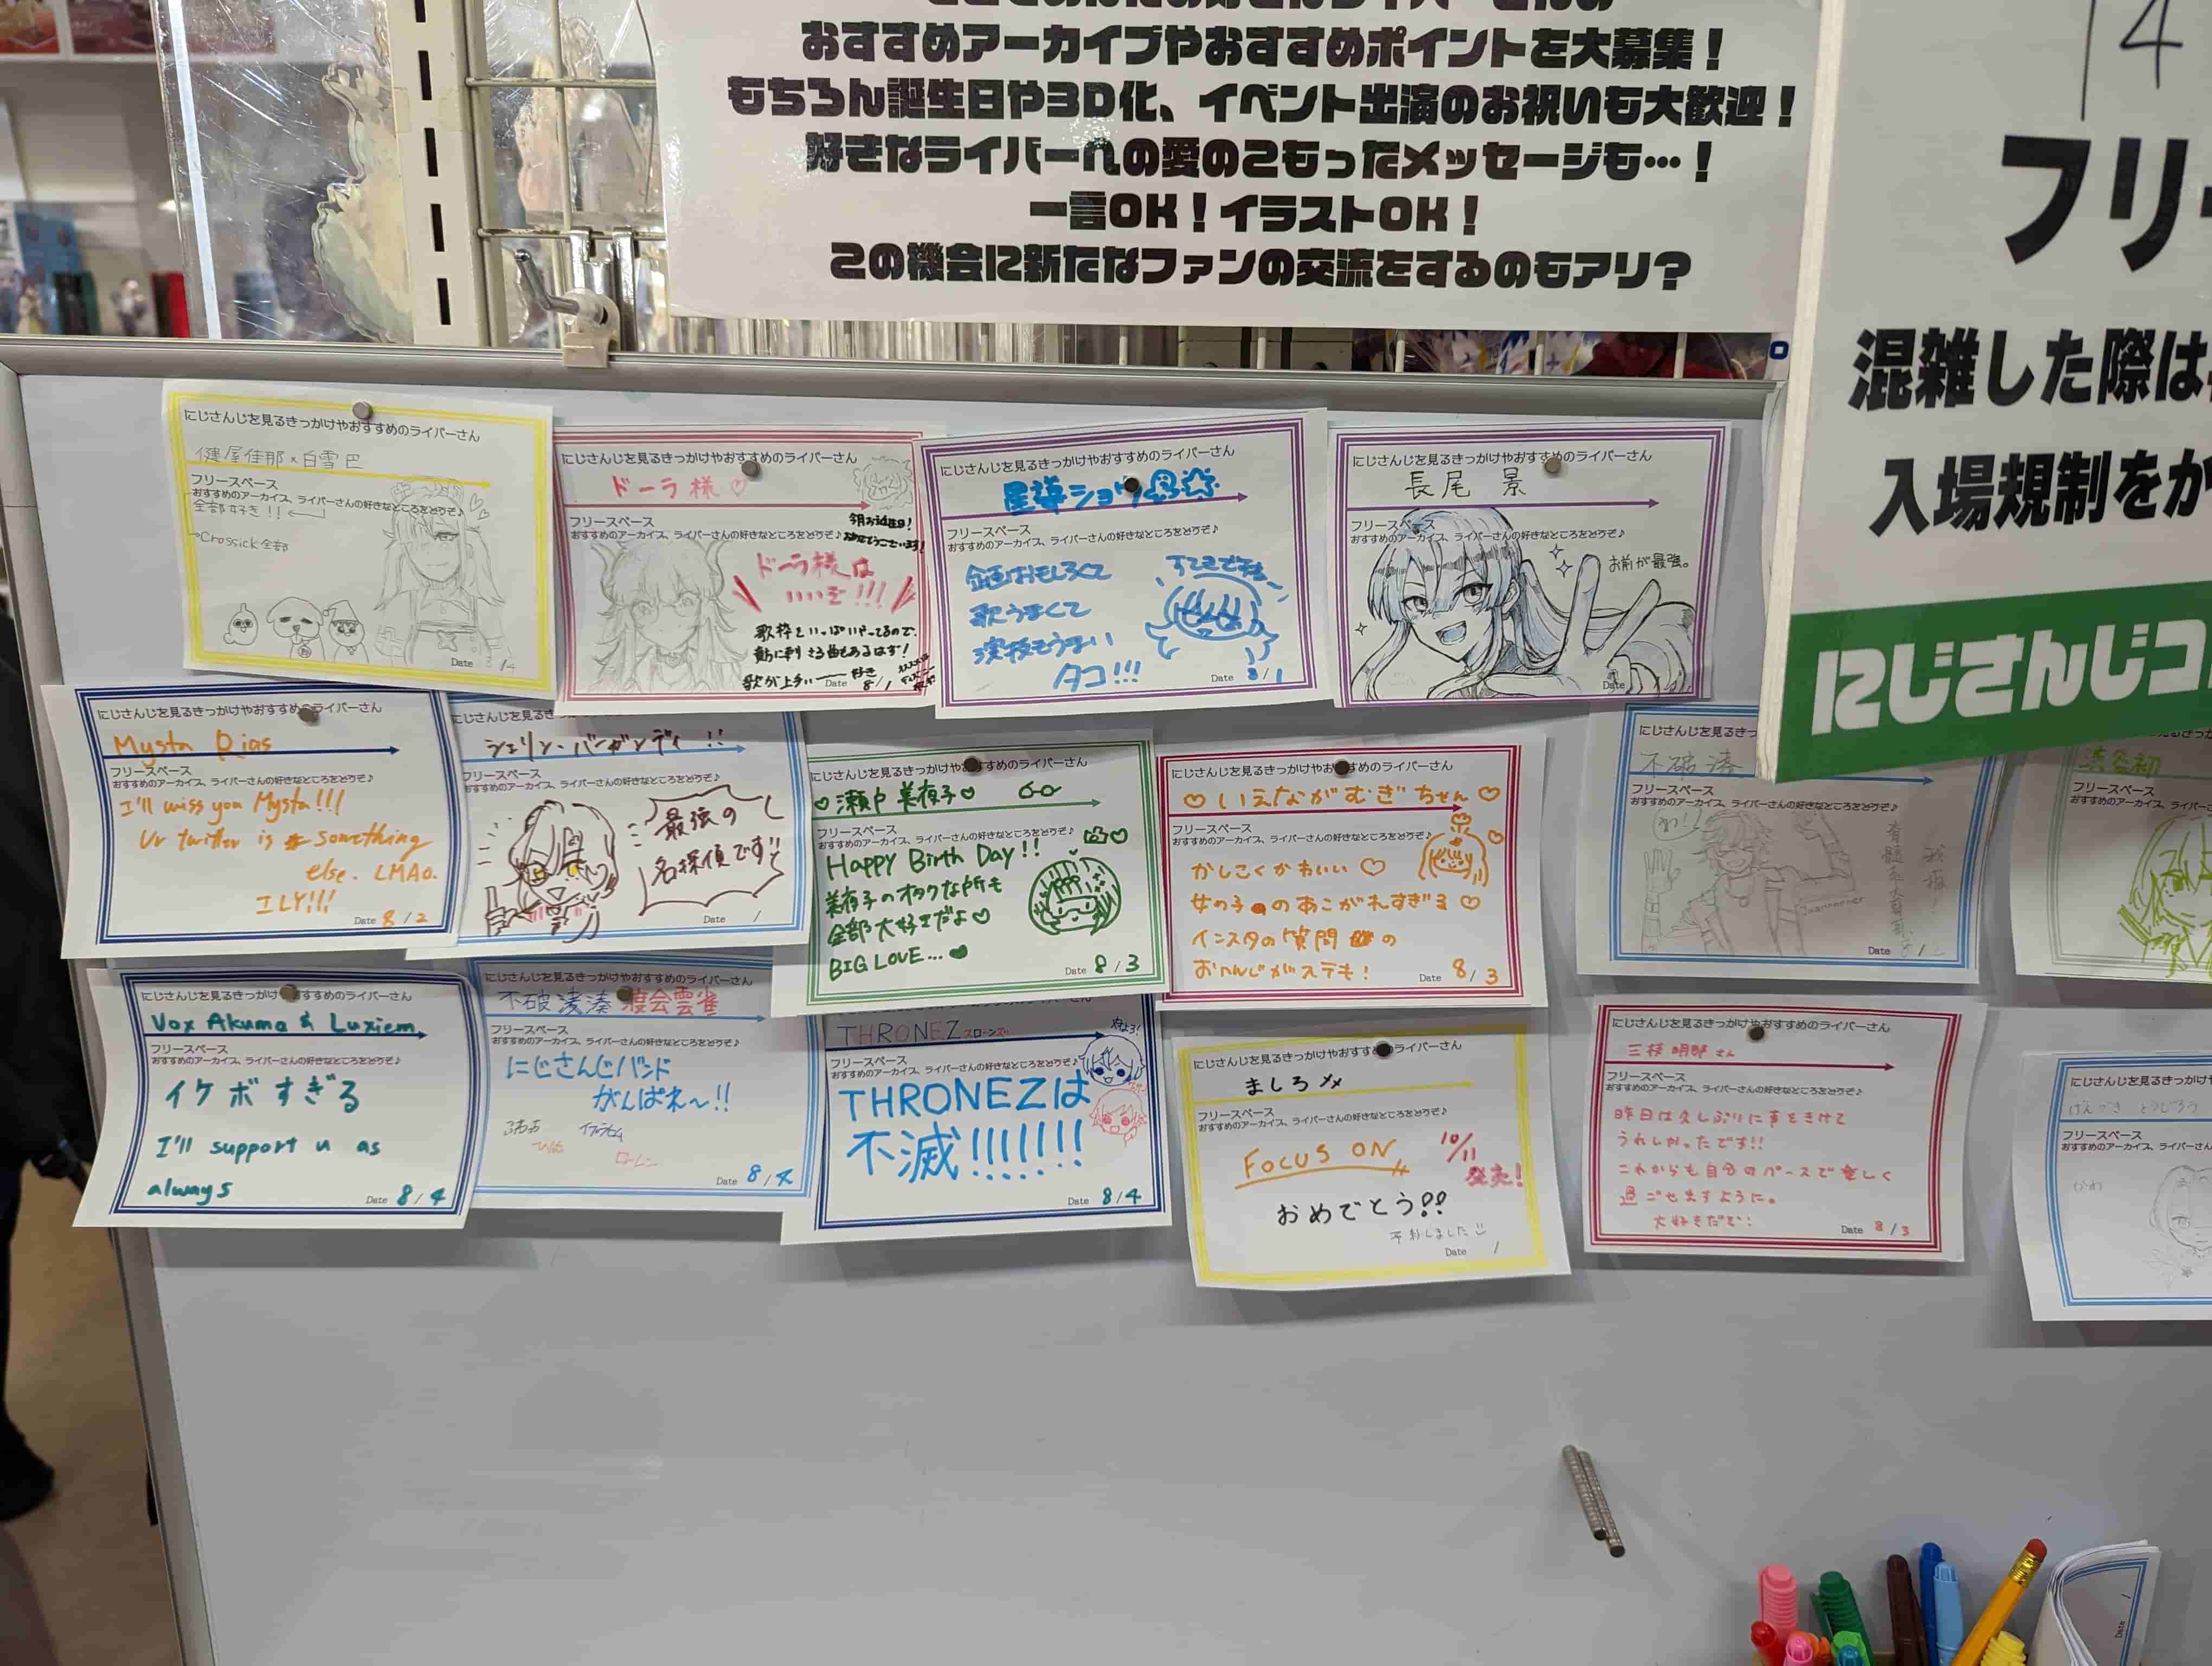 おすすめアーカイブやおすすめポイントを大募集！
もちろん誕生日や3D化、イベント出演のお祝いも大歓迎！
好きなライバーへの愛のこもったメッセージも…！
一言OK！イラストOK！
この機会に新たなファンの交流をするのもアリ？
14
フリ
混雑した際は
入場規制をか
にじさんじコ
にじさんじを見るきっかけやおすすめのライバーさん
健屋花那×白雪巴
フリースペース
おすすめのアーカイブ、ライバーさんの好きなところをどうぞ♪
全部好き!!
→Crossick全部
Date /4
にじさんじを見るきっかけやおすすめのライバーさん
ドーラ様♡
フリースペース
おすすめのアーカイブ、ライバーさんの好きなところをどうぞ♪
今月お誕生日！
おめでとうございます！
ドーラ様は
いいぞ!!!
歌枠もいっぱいやってるので、
歌が上手い
Date 8/1
にじさんじを見るきっかけやおすすめのライバーさん
星導ショウ
フリースペース
おすすめのアーカイブ、ライバーさんの好きなところをどうぞ♪
企画おもしろくて
歌うまくて
演技もうまい
タコ!!!
Date 8/1
にじさんじを見るきっかけやおすすめのライバーさん
長尾 景
フリースペース
おすすめのアーカイブ、ライバーさんの好きなところをどうぞ♪
お前が最強。
Date
にじさんじを見るきっかけやおすすめのライバーさん
Mysta Rias
フリースペース
おすすめのアーカイブ、ライバーさんの好きなところをどうぞ♪
I'll miss you Mysta!!!
Ur twitter is something
else. LMAO.
ILY!!!
Date 8/2
にじさんじを見るき
シェリン・バーガンディ!!
フリースペース
おすすめのアーカイブ、ライバーさんの好きなところをどうぞ♪
最強の
名探偵です!!
Date /
にじさんじを見るきっかけやおすすめのライバーさん
♡瀬戸 美夜子♡
フリースペース
おすすめのアーカイブ、ライバーさんの好きなところをどうぞ♪
Happy Birth Day!!
美夜子のオタクな所も
全部大好きだよ♡
BIG LOVE...♥
Date 8/3
にじさんじを見るきっかけやおすすめのライバーさん
♡いえながむぎちゃん♡
フリースペース
おすすめのアーカイブ、ライバーさんの好きなところをどうぞ♪
かしこくかわいい♡
女の子のあこがれすぎる♡
インスタの質問の
おへんじがステキ！
Date 8/3
にじさんじを見るきっか
不破 湊
フリースペース
おすすめのアーカイブ、ライバーさんの好きなところをどうぞ♪
Date
フリースペース
おすすめのアーカイブ、ラ
にじさんじを見るきっかけやおすすめのライバーさん
Vox Akuma & Luxiem
フリースペース
おすすめのアーカイブ、ライバーさんの好きなところをどうぞ♪
イケボすぎる
I'll support u as
always
Date 8/4
にじさんじを見るきっかけやおすすめのライバーさん
不破湊 渡会雲雀
フリースペース
おすすめのアーカイブ、ライバーさんの好きなところをどうぞ♪
にじさんじバンド
がんばれ〜!!
ローレン
Date 8/4
THRONEZ スローンズ
フリースペース
おすすめのアーカイブ、ライバーさんの好きなところをどうぞ♪
THRONEZは
不滅!!!!!!!
Date 8/4
にじさんじを見るきっかけやおすすめのライバーさん
ましろ
フリースペース
おすすめのアーカイブ、ライバーさんの好きなところをどうぞ♪
FOCUS ON
10/11
発売！
おめでとう!!
予約しました
Date /
にじさんじを見るきっかけやおすすめのライバーさん
三枝明那さん
フリースペース
おすすめのアーカイブ、ライバーさんの好きなところをどうぞ♪
昨日は久しぶりに声をきけて
うれしかったです!!
これからも自分のペースで楽しく
過ごせますように。
大好きだで！
Date 8/3
にじさんじを見るきっかけ
げんづき とうじろう
フリースペース
おすすめのアーカイブ、ライバーさん
Date /